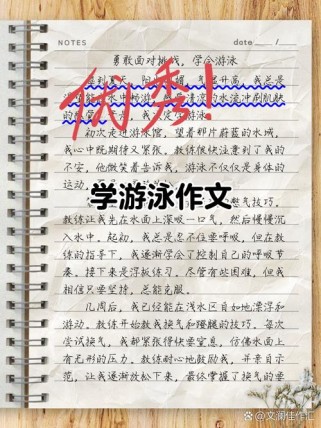 NOTES
date
勇敢面对挑战，学会游泳
优秀！
初次走进游泳馆，望着那片蔚蓝的水域，
我心中既期待又紧张。教练很快注意到了我的
不安，他微笑着告诉我，游泳不仅仅是身体的
运动，
学游泳作文
憋气技巧。
教练让我先在水面上深吸一口气，然后慢慢沉
入水中。起初，我总是忍不住要呼吸，但在教
练的指导下，我逐渐学会了控制自己的呼吸节
奏。接下来是浮板练习。尽管有些困难，但我
相信只要坚持，总能克服。
几周后，我已经能在浅水区自如地漂浮和
游动。教练开始教我换气和蹬腿的技巧。每次
尝试换气，我都紧张得快要窒息，仿佛水面上
有无形的压力。教练耐心地鼓励我，并亲自示
范，让我逐渐放松下来，最终掌握了换气的要
@文澜佳作汇